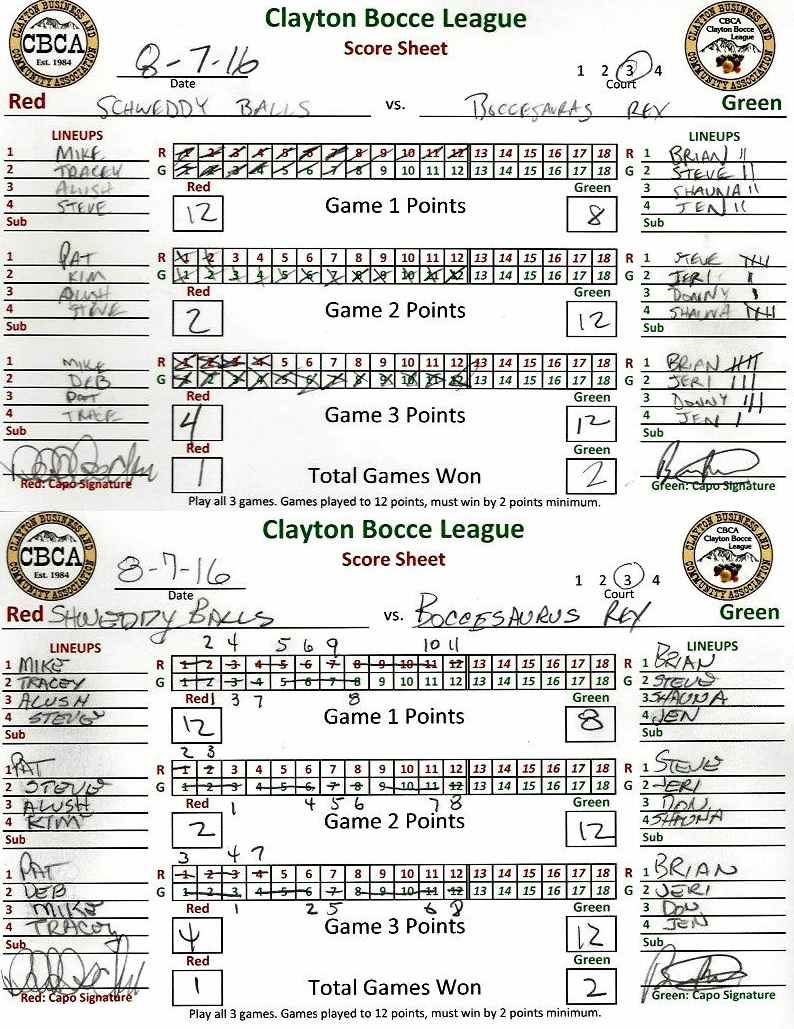 CLAYTON BUSINESS AND COMMUNITY ASSOCIATION
CBCA
Est. 1984
Clayton Bocce League
Score Sheet
CBCA
Clayton Bocce League
8-7-16
Date
1 2 3 4
Court
Red SCHWEDDY BALLS vs. BOCCESAURAS REX Green
LINEUPS LINEUPS
1 MIKE R 1 2 3 4 5 6 7 8 9 10 11 12 13 14 15 16 17 18 R 1 BRIAN II
2 TRACEY G 1 2 3 4 5 6 7 8 9 10 11 12 13 14 15 16 17 18 G 2 STEVE II
3 ALUSH Red Green 3 SHAUNA II
4 STEVE 12 Game 1 Points 8 4 JEN II
Sub Sub
1 PAT R 1 2 3 4 5 6 7 8 9 10 11 12 13 14 15 16 17 18 R 1 STEVE
2 KIM G 1 2 3 4 5 6 7 8 9 10 11 12 13 14 15 16 17 18 G 2 JERI I
3 ALUSH Red Green 3 DONNY I
4 STEVE 2 Game 2 Points 12 4 SHAUNA
Sub Sub
1 MIKE R 1 2 3 4 5 6 7 8 9 10 11 12 13 14 15 16 17 18 R 1 BRIAN
2 DEB G 1 2 3 4 5 6 7 8 9 10 11 12 13 14 15 16 17 18 G 2 JERI III
3 PAT Red Green 3 DONNY III
4 TRACE 4 Game 3 Points 12 4 JEN I
Sub Sub
Red Green
1 Total Games Won 2
Red: Capo Signature Green: Capo Signature
Play all 3 games. Games played to 12 points, must win by 2 points minimum.
CLAYTON BUSINESS AND COMMUNITY ASSOCIATION
CBCA
Est. 1984
Clayton Bocce League
Score Sheet
CBCA
Clayton Bocce League
8-7-16
Date
1 2 3 4
Court
Red SHWEDDY BALLS vs. BOCCESAURUS REX Green
LINEUPS 2 4 5 6 9 10 11 LINEUPS
1 MIKE R 1 2 3 4 5 6 7 8 9 10 11 12 13 14 15 16 17 18 R 1 BRIAN
2 TRACEY G 1 2 3 4 5 6 7 8 9 10 11 12 13 14 15 16 17 18 G 2 STEVE
3 ALUSH Red 1 3 7 8 Green 3 SHAUNA
4 STEVE 12 Game 1 Points 8 4 JEN
Sub Sub
2 3
1 PAT R 1 2 3 4 5 6 7 8 9 10 11 12 13 14 15 16 17 18 R 1 STEVE
2 STEVE G 1 2 3 4 5 6 7 8 9 10 11 12 13 14 15 16 17 18 G 2 JERI
3 ALUSH Red 1 4 5 6 7 8 Green 3 DON
4 KIM 2 Game 2 Points 12 4 SHAUNA
Sub Sub
3 4 7
1 PAT R 1 2 3 4 5 6 7 8 9 10 11 12 13 14 15 16 17 18 R 1 BRIAN
2 DEB G 1 2 3 4 5 6 7 8 9 10 11 12 13 14 15 16 17 18 G 2 JERI
3 MIKE Red 1 2 5 6 8 Green 3 DON
4 TRACEY 4 Game 3 Points 12 4 JEN
Sub Sub
Red Green
1 Total Games Won 2
Red: Capo Signature Green: Capo Signature
Play all 3 games. Games played to 12 points, must win by 2 points minimum.